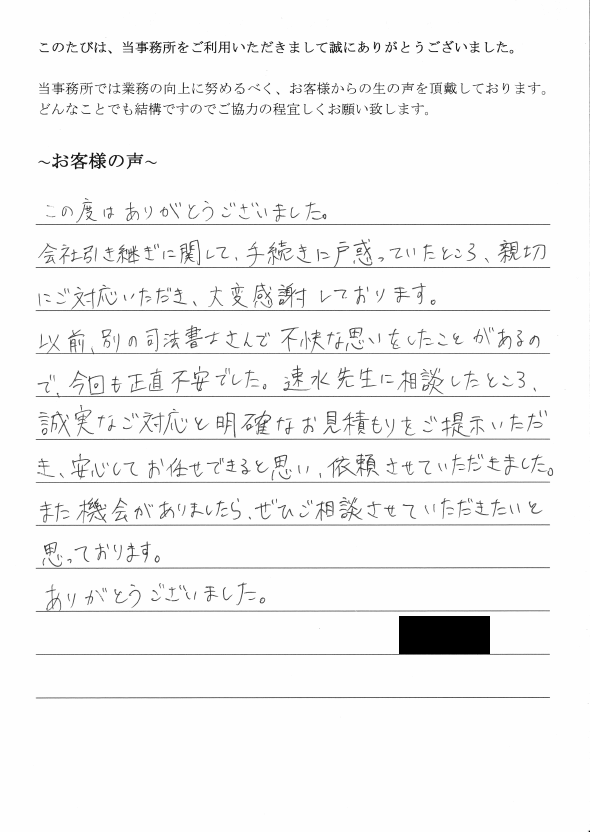 このたびは、当事務所をご利用いただきまして誠にありがとうございました。
当事務所では業務の向上に努めるべく、お客様からの生の声を頂戴しております。
どんなことでも結構ですのでご協力の程宜しくお願い致します。
~お客様の声~
この度はありがとうございました。
会社引き継ぎに関して、手続きに戸惑っていたところ、親切
にご対応いただき、大変感謝しております。
以前、別の司法書士さんで不快な思いをしたことがあるの
で、今回も正直不安でした。速水先生に相談したところ、
誠実なご対応と明確なお見積もりをご提示いただ
き、安心してお任せできると思い、依頼させていただきました。
また機会がありましたら、ぜひご相談させていただきたいと
思っております。
ありがとうございました。